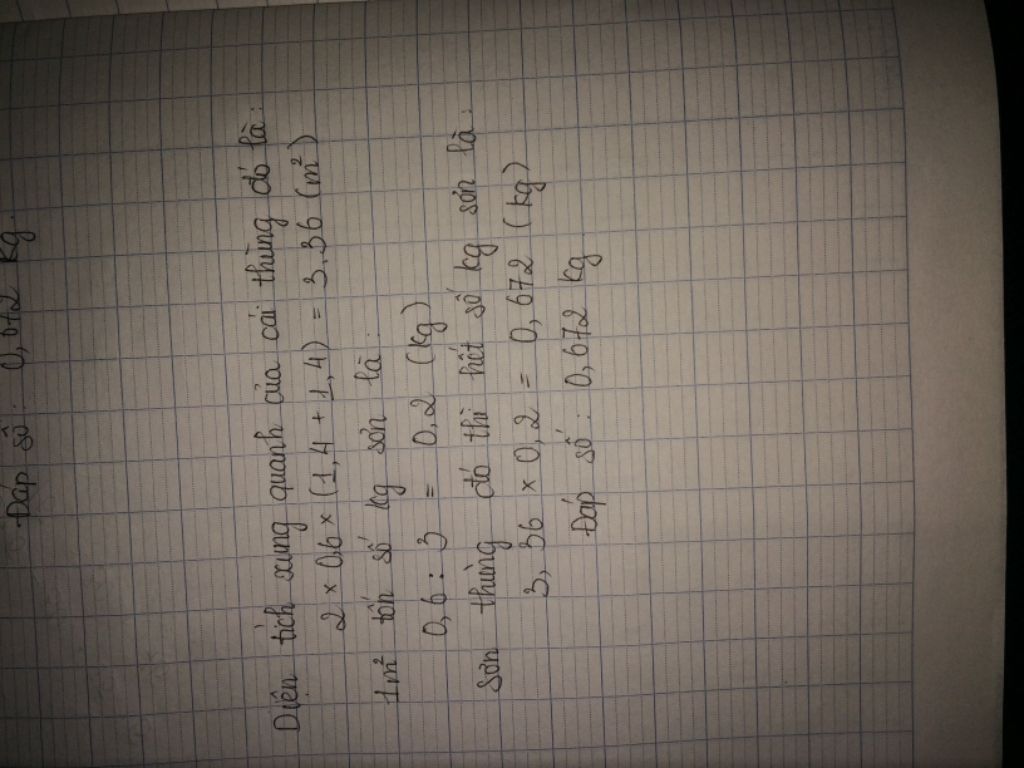 Đáp số: 0,672 kg.
Diện tích xung quanh của cái thùng đó là:
2 x 0,6 x (1,4 + 1,4) = 3,36 (m²)
1m² tốn số kg sơn là:
0,6 : 3 = 0,2 (kg)
Sơn thùng đó thì hết số kg sơn là:
3,36 x 0,2 = 0,672 (kg)
Đáp số: 0,672 kg